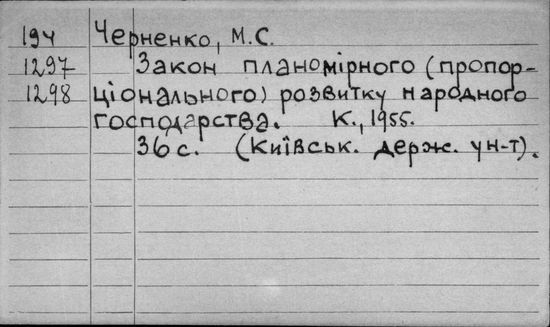 194 Черненко, М.С.
1297 Закон планомірного (пропор-
1298 ціонального) розвитку народного
господарства. К., 1955.
36 с. (Київськ. держ. ун-т).